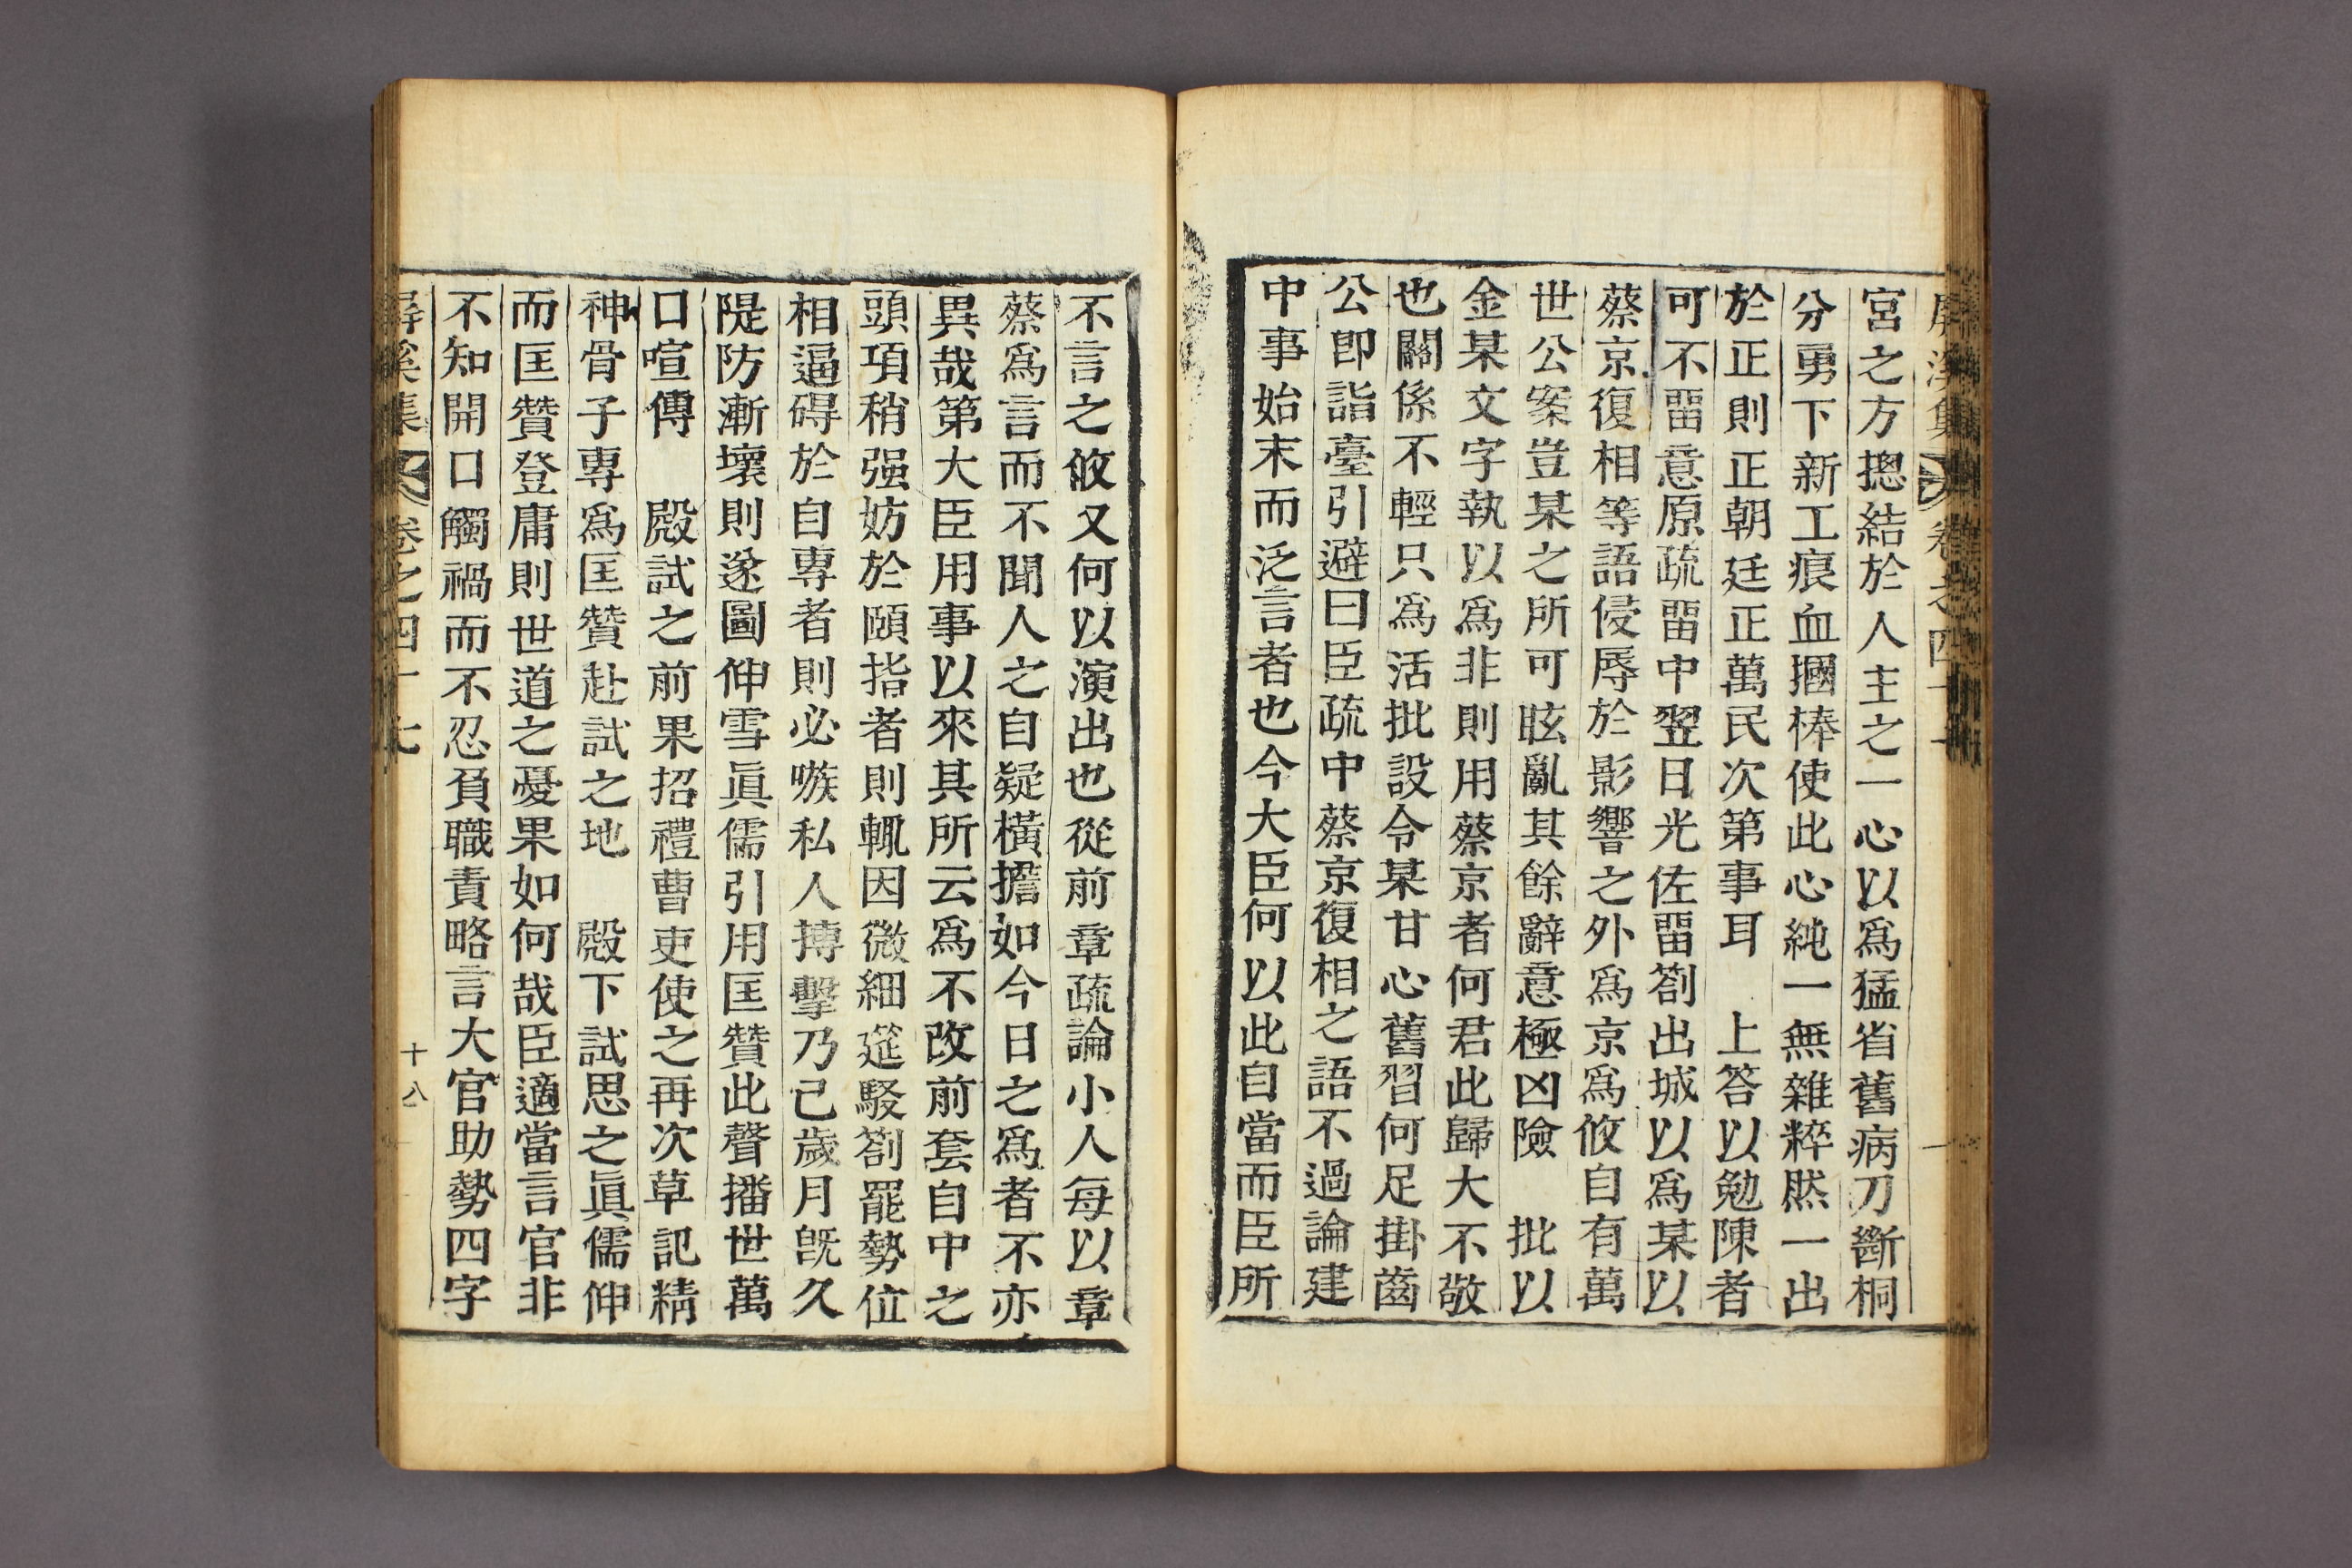 宮之方摠結於人主之一心以爲猛省舊病刀斷桐
分勇下新工痕血摑棒使此心純一無雜粹然一出
於正則正朝廷正萬民次第事耳 上答以勉陳者
可不畱意原疏畱中翌日光佐畱劄出城以爲某以
蔡京復相等語侵辱於影響之外爲京爲攸自有萬
世公案豈某之所可眩亂其餘辭意極凶險 批以
金某文字執以爲非則用蔡京者何君此歸大不敬
也關係不輕只爲活批設令某甘心舊習何足掛齒
公卽詣臺引避曰臣疏中蔡京復相之語不過論建
中事始末而泛言者也今大臣何以此自當而臣所
不言之攸又何以演出也從前章疏論小人每以章
蔡爲言而不聞人之自疑橫擔如今日之爲者不亦
異哉第大臣用事以來其所云爲不改前套自中之
頭項稍强妨於頤指者則輒因微細筵駁劄罷勢位
相逼碍於自專者則必嗾私人搏擊乃已歲月旣久
隄防漸壞則遂圖伸雪眞儒引用匡贊此聲播世萬
口喧傳 殿試之前果招禮曹吏使之再次草記精
神骨子專爲匡贊赴試之地 殿下試思之眞儒伸
而匡贊登庸則世道之憂果如何哉臣適當言官非
不知開口觸禍而不忍負職責略言大官助勢四字
屛溪集 卷之四十七 十八